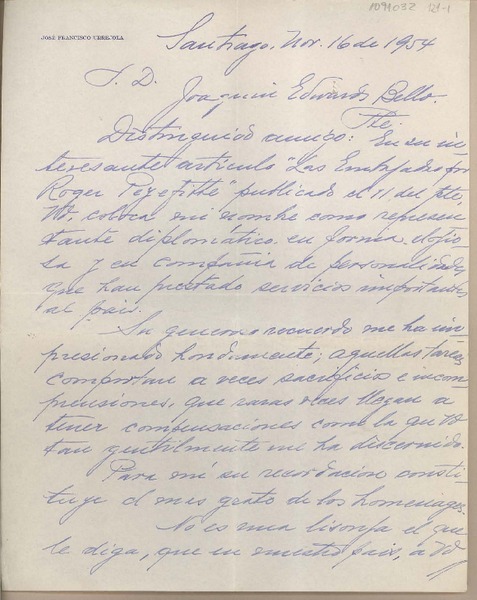 1091032 121-1
JOSÉ FRANCISCO URREJOLA
Santiago, Nov. 16 de 1954
S. D.
Joaquin Edwards Bello.
Pte.
Distinguido amigo: En su in-
teresante artículo "Las Embajadas por
Roger Peyefitte" publicado el 11, del pte,
Ud. coloca mi nombre como represen
tante diplomático en forma elogio
sa y en compañia de personalidades
que han prestado servicios importantes
al país.
Su generoso recuerdo me ha im
presionado hondamente; aquellas tareas
comportan a veces sacrificios e incom
prensiones, que raras veces llegan a
tener compensaciones como la que Ud
tan gentilmente me ha discernido.
Para mí su recordacion consti
tuye el mas grato de los homenajes.
No es una lisonja el que
le diga, que en nuestro país, a Ud